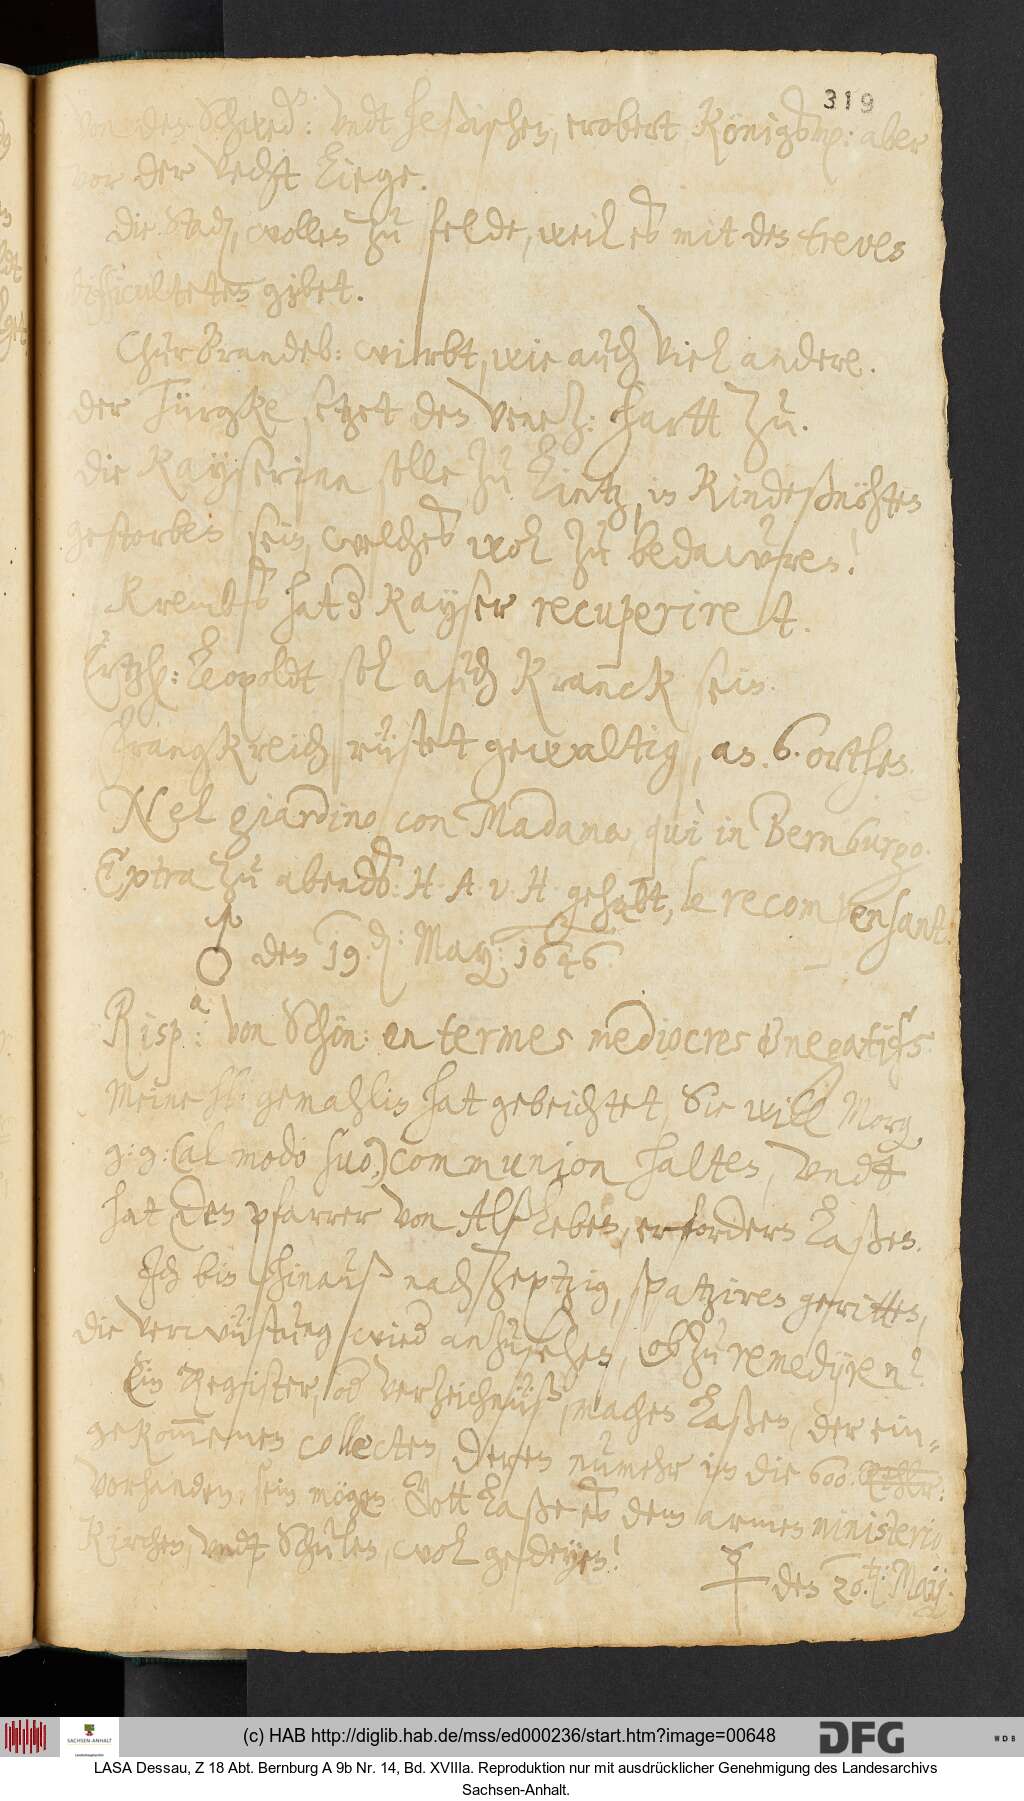 319
von Schwed: vndt heßischen, erobert, Königsm: aber
vor der Vecht liege.
Die Stad, wollen zu felde, weil es mit den treves
difficulteten gibet.
ChurBrandeb: wirbt, wie auch viel andere.
der Türgke setzet den Venez: hartt zu.
die Kayserinn solle zu Lintz, in Kindeßnöhten
gestorben sein, welches wol zu bedawren!
Krembs hat d Kayser recuperiret.
Ertzh: Leopoldt sol auch Kranck sein.
Frangkreich rüstet gewaltig, an .6. orthen.
Nel giardino con Madama, qui in Bernburgo.
Extra zu abends: H. A. v. H. gehabt, le recompensant.
♂ den 19.d: May: 1646
Risp.a: von Schön: en termes mediocres & negatifs
Meine gemahlin hat gebeichtet, Sie will Morg
g: g: (al modo suo,) communion halten, vndt
hat den pfarrer von Alßleben, erfordern laßen.
Ich bin hinauß nach Zeptzig, spatziren geritten,
die verwüstung wied anzusehen, ob zu remedijren?
Ein Register, od verzeichnüß, machen laßen, der ein-
gekom̅enen collecten, deren numehr in die 600 Rthlr:
vorhanden, sein mögen. Gott laße es dem armen ministerio
Kirchen, vndt Schulen, wol gedeyen!
☿ den 20.t: Maij.
(c) HAB http://diglib.hab.de/mss/ed000236/start.htm?image=00648
SACHSEN-ANHALT
DFG
WDB
LASA Dessau, Z 18 Abt. Bernburg A 9b Nr. 14, Bd. XVIIIa. Reproduktion nur mit ausdrücklicher Genehmigung des Landesarchivs
Sachsen-Anhalt.